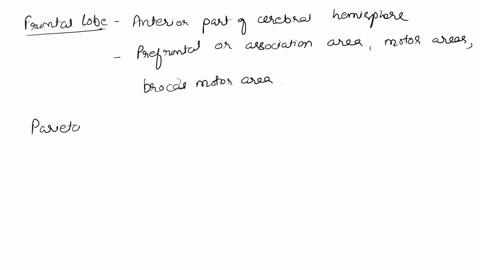 Frontal lobe - Anterior part of cerebral hemisphere
- Prefrontal or association area, motor areas,
brocas motor area
Parieto